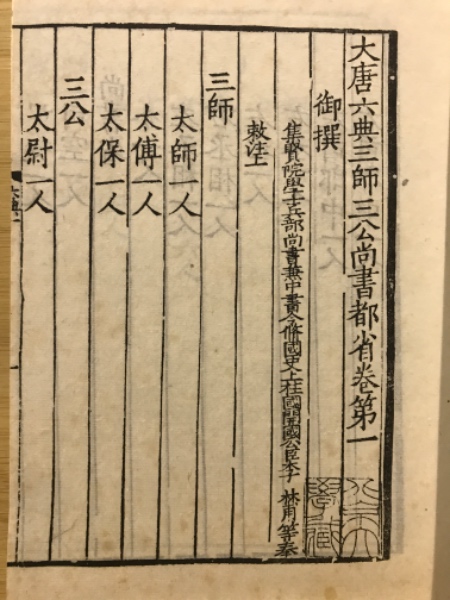 大唐六典三師三公尚書都省卷第一
御撰
集賢院學士兵部尚書兼中書令修國史上柱國開國公臣李林甫等奉
敕注上
三師
太師一人
太傅一人
太保一人
三公
太尉一人